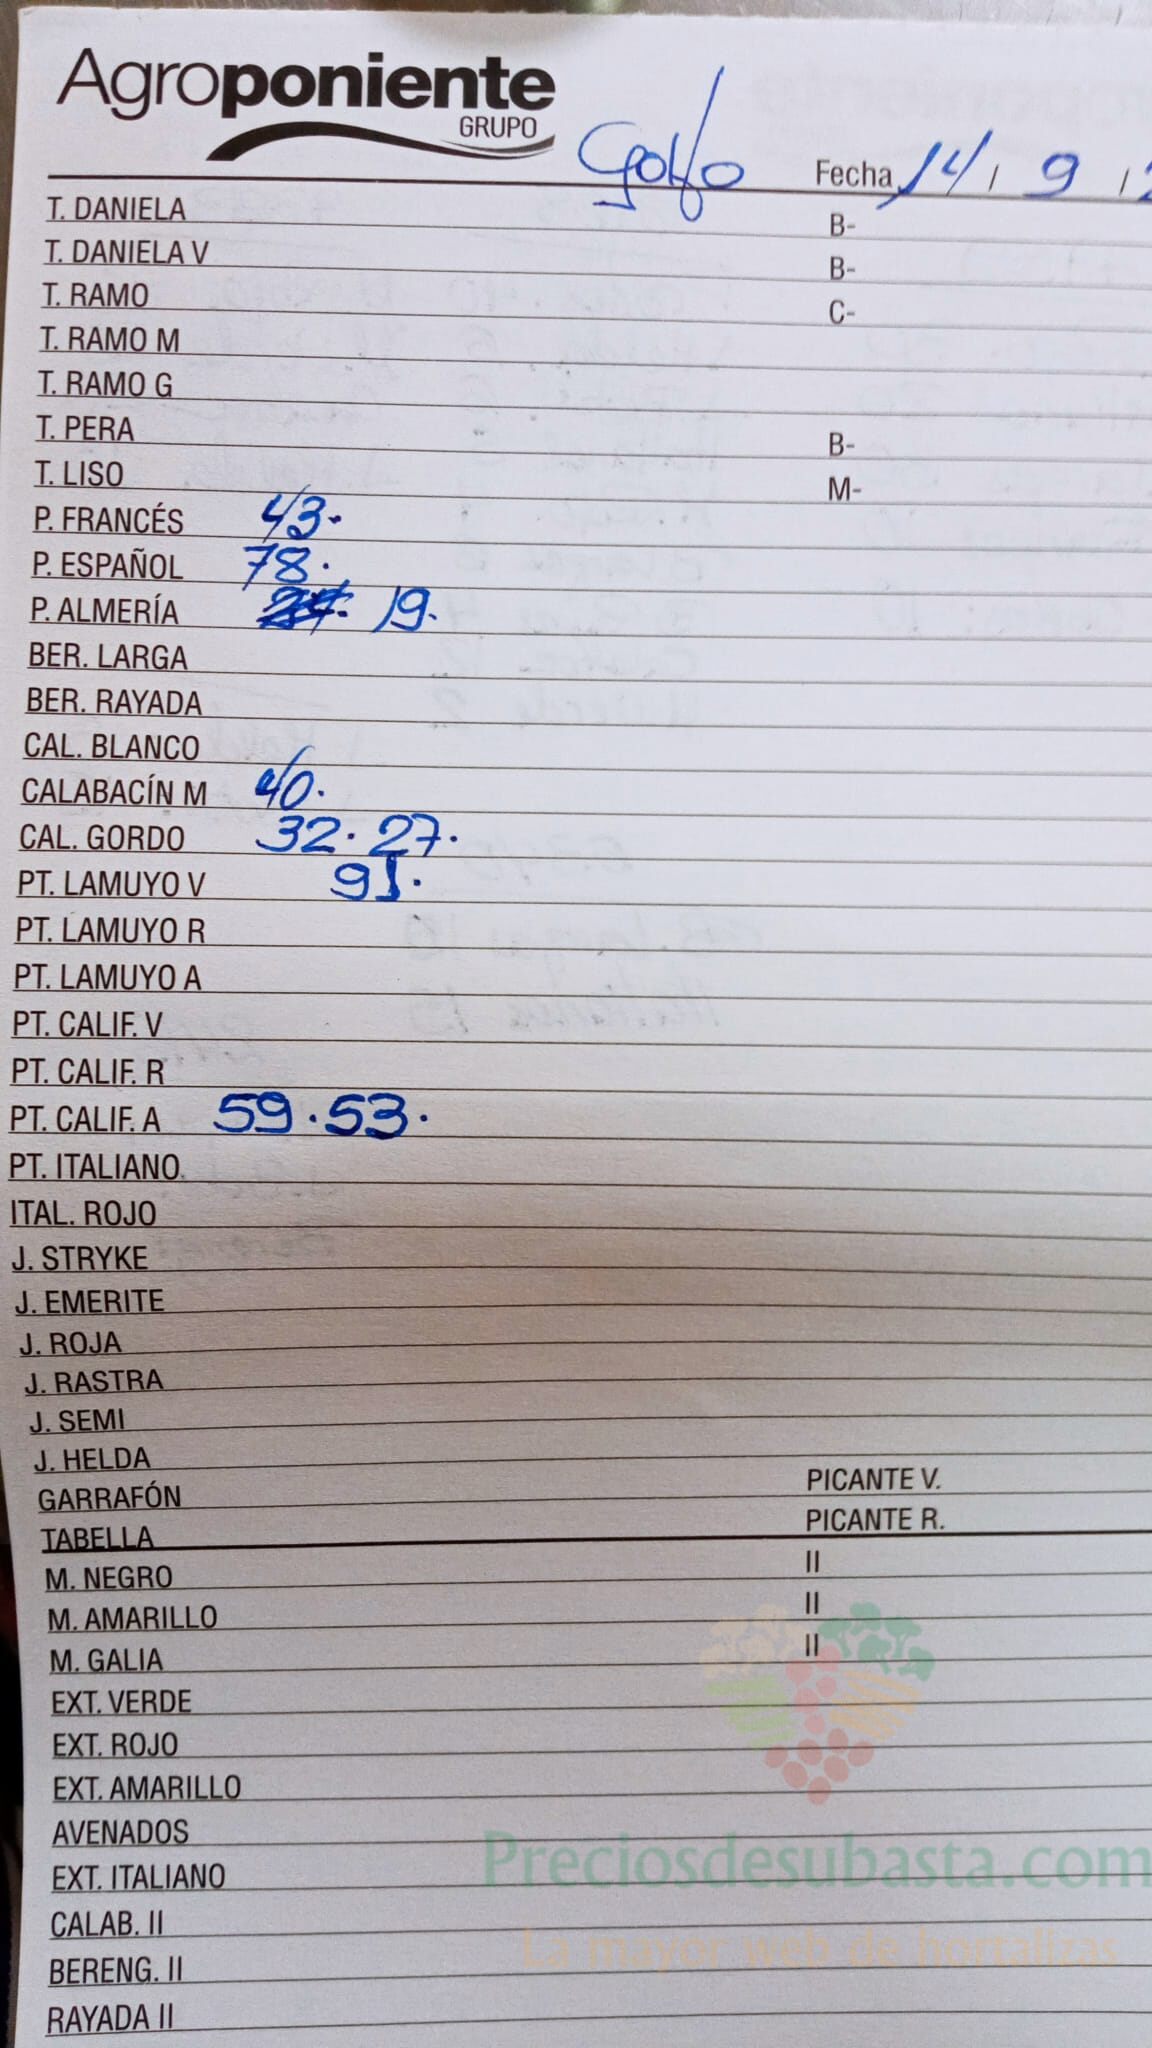 Agroponiente
GRUPO
Golfo Fecha 14 / 9 /
T. DANIELA B-
T. DANIELA V B-
T. RAMO C-
T. RAMO M
T. RAMO G
T. PERA B-
T. LISO M-
P. FRANCÉS 43.
P. ESPAÑOL 78.
P. ALMERÍA 19.
BER. LARGA
BER. RAYADA
CAL. BLANCO
CALABACÍN M 40.
CAL. GORDO 32. 27.
PT. LAMUYO V 91.
PT. LAMUYO R
PT. LAMUYO A
PT. CALIF. V
PT. CALIF. R
PT. CALIF. A 59. 53.
PT. ITALIANO
ITAL. ROJO
J. STRYKE
J. EMERITE
J. ROJA
J. RASTRA
J. SEMI
J. HELDA
GARRAFÓN PICANTE V.
TABELLA PICANTE R.
M. NEGRO II
M. AMARILLO II
M. GALIA II
EXT. VERDE
EXT. ROJO
EXT. AMARILLO
AVENADOS
EXT. ITALIANO
CALAB. II
BERENG. II
RAYADA II
Preciosdesubasta.com
La mayor web de hortalizas